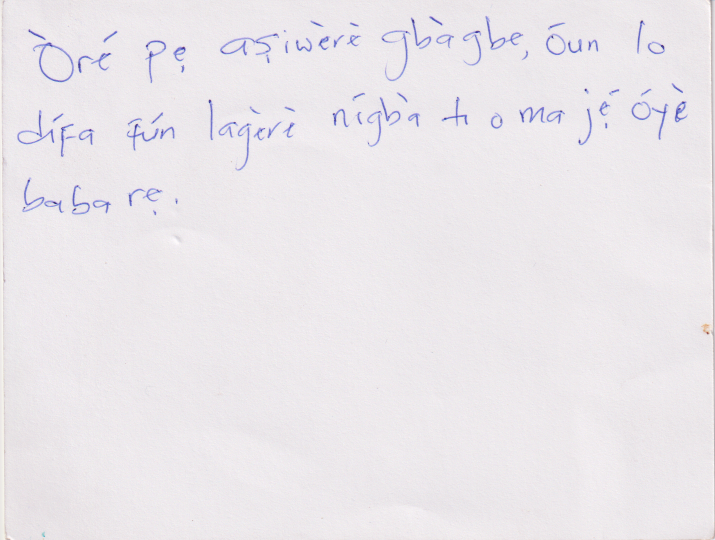 Òré pẹ aṣiwèrè gbàgbe, óun lo
dífa fún lagèrè nígbà ti o ma jẹ́ óyè
baba rẹ.